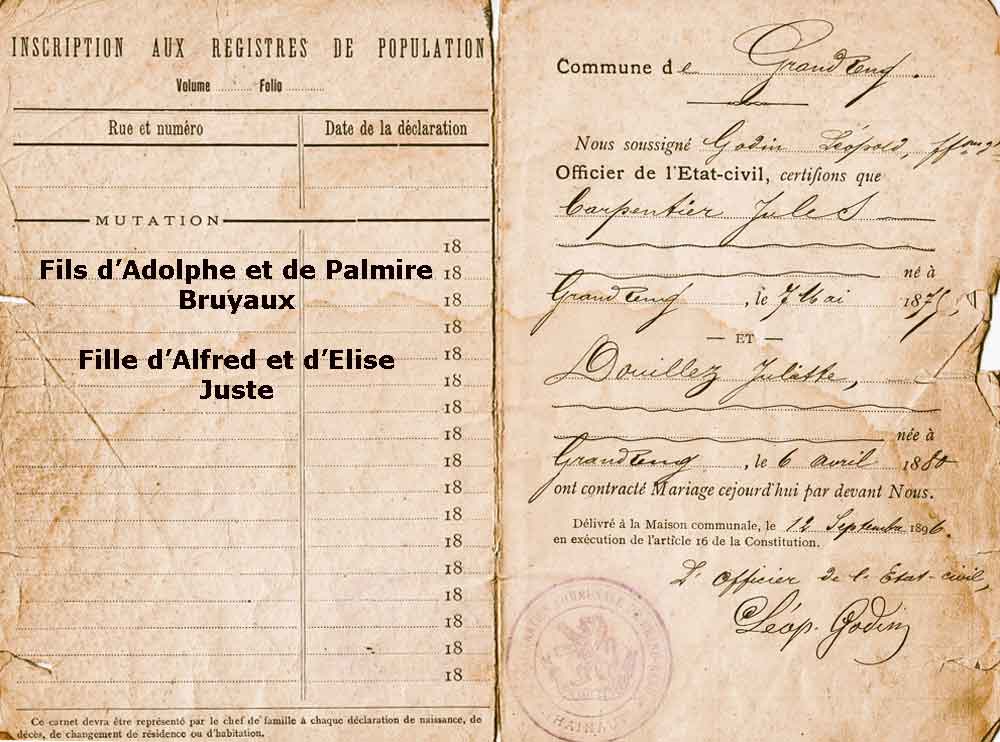 INSCRIPTION AUX REGISTRES DE POPULATION
Volume ............ Folio ............
Rue et numéro
Date de la déclaration
MUTATION
18
Fils d'Adolphe et de Palmire 18
Bruyaux 18
18
Fille d'Alfred et d'Elise 18
Juste 18
18
18
18
18
18
18
18
18
18
18
18
Ce carnet devra être représenté par le chef de famille à chaque déclaration de naissance, de
décès, de changement de résidence ou d'habitation.
Commune de GrandReng.
Nous soussigné Godin Léopold,
Officier de l'Etat-civil, certifions que
Carpentier Jules
né à
GrandReng, le 7 Mai 1875,
— ET —
Douillez Juliette,
née à
GrandReng, le 6 avril 1880
ont contracté Mariage cejourd'hui par devant Nous.
Délivré à la Maison communale, le 12 Septembre 1896.
en exécution de l'article 16 de la Constitution.
L'officier de l'Etat-civil,
Léop. Godin
HAINAUT